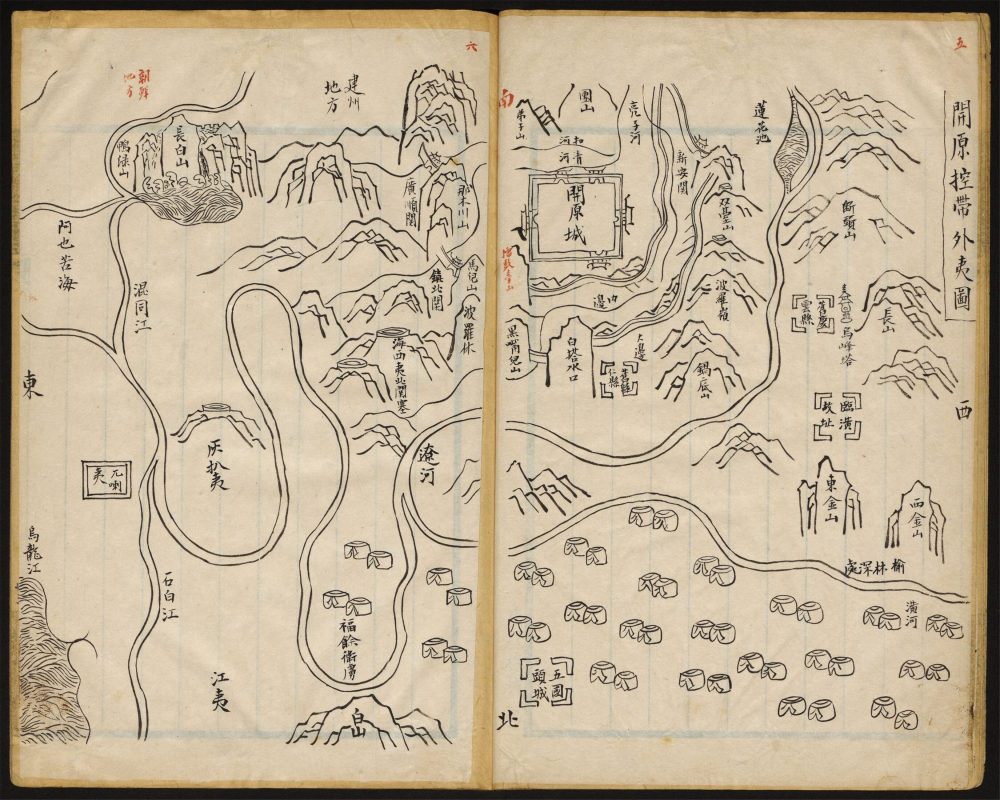 五
開原控帶外夷圖
西
南
北
圍山
弟子山
亮子河
清河
蓮花池
新安関
開原城
双臺山
斷頭山
波羅嶺
長山
舊慶雲縣
烏峰塔
内邊
大邊
黑嘴兒山
白塔水口
鍋底山
臨潢故址
東金山
西金山
榆林深處
潢河
五國頭城
六
朝鮮地方
建州地方
長白山
鴨綠山
廣順関
那木川山
阿也苦海
混同江
鎮北関
馬兒山
波羅林
海西夷北関塞
東
灰扒夷
遼河
兀喇夷
烏龍江
石白江
福餘衛房
江夷
白山